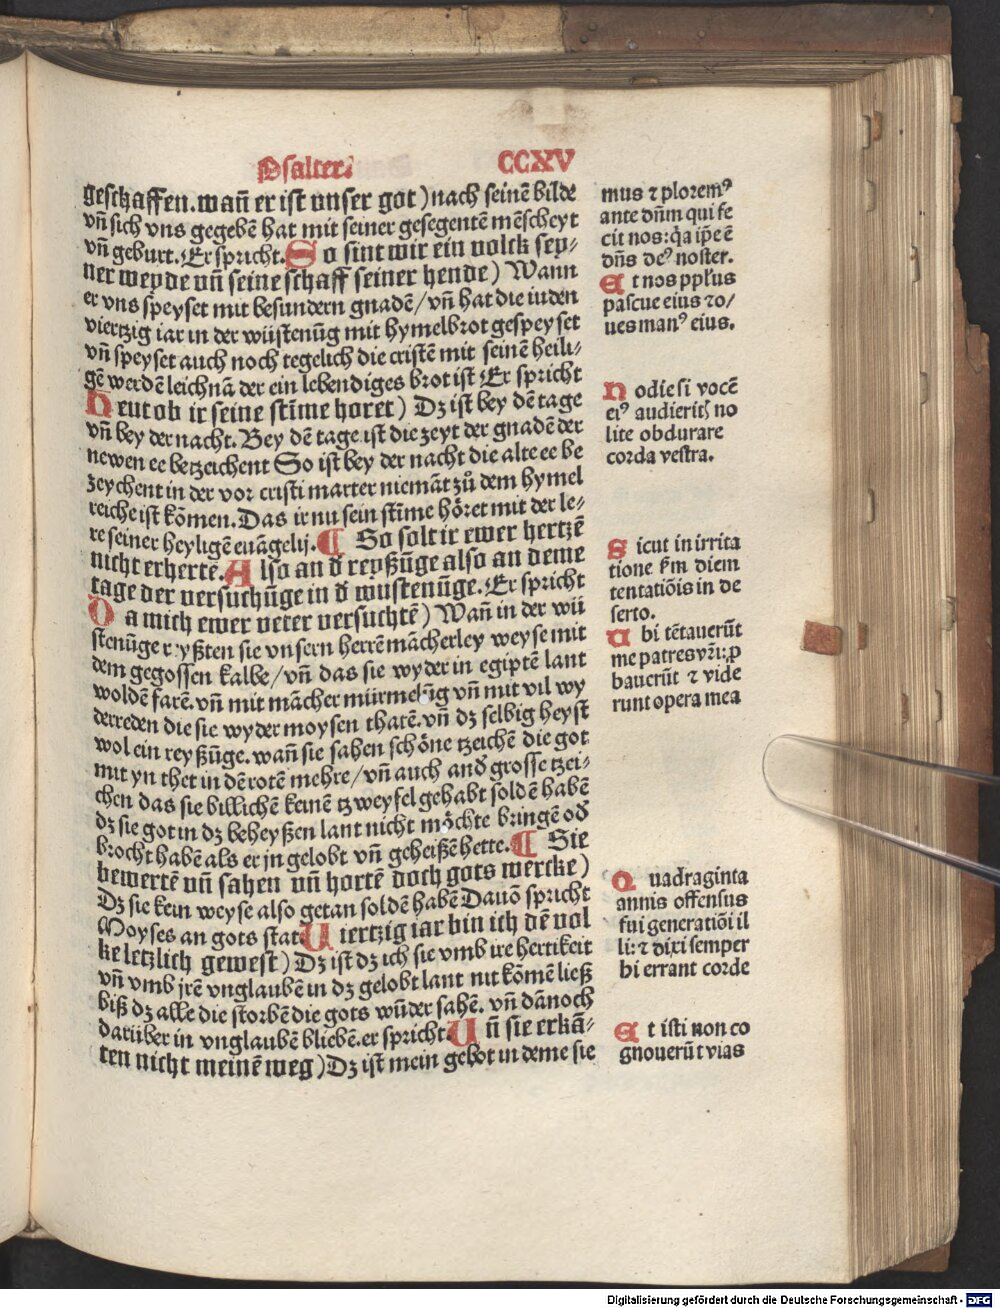 Psalter.
CCXV
geschaffen. wañ er ist vnser got) nach seinẽ bilde
vñ sich vns gegebẽ hat mit seiner gesegentẽ mẽscheyt
vñ geburt. Er spricht. So sint wir ein volck sey⸗
ner weyde vñ seine schaff seiner hende) Wann
er vns speyset mit besundern gnadẽ/ vñ hat die iuden
viertzig iar in der wüstenũg mit hymelbrot gespeyset
vñ speyset auch noch tegelich die cristẽ mit seinẽ heili⸗
gẽ werdẽ leichnã der ein lebendiges brot ist Er spricht
Heut ob ir seine stĩme horet) Dz ist bey dẽ tage
vñ bey der nacht. Bey dẽ tage ist die zeyt der gnadẽ der
newen ee betzeichent So ist bey der nacht die alte ee be
zeychent in der vor cristi marter niemãt zů dem hymel
reiche ist kõmen. Das ir nu sein stĩme höret mit der le⸗
re seiner heyligẽ euãgelij. ¶ So solt ir ewer hertzẽ
nicht erhertẽ. Also an ð reyßũge also an deme
tage der versuchũge in ð wustenũge. Er spricht
Da mich ewer veter versuchtẽ) Wañ in der wü
stenũge reyßten sie vnsern herrẽ mãcherley weyse mit
dem gegossen kalbe/ vñ das sie wyder in egiptẽ lant
woldẽ farẽ. vñ mit mãcher mürmelũg vñ mit vil wy
derreden die sie wyder moysen thatẽ. vñ dz selbig heyst
wol ein reyßũge. wañ sie sahen schöne tzeichẽ die got
mit yn thet in dẽ rotẽ mehre/ vñ auch anð grosse tzei⸗
chen das sie billichẽ keinẽ tzweyfel gehabt soldẽ habẽ
dz sie got in dz beheyßen lant nicht möchte bringẽ oð
brocht habẽ als er jn gelobt vñ geheißẽ hette. ¶ Sie
bewertẽ vñ sahen vñ hortẽ doch gots wercke)
Dz sie kein weyse also getan soldẽ habẽ Dauõ spricht
Moyses an gots stat Uiertzig iar bin ich dẽ vol
ke letzlich gewest) Dz ist dz ich sie vmb ire hertikeit
vñ vmb jrẽ vnglaubẽ in dz gelobt lant nit kõmẽ ließ
biß dz alle die storbẽ die gots wũder sahẽ. vñ dãnoch
darüber in vnglaubẽ bliebẽ. er spricht. Uñ sie erkã⸗
ten nicht meinẽ weg) Dz ist mein gebot in deme sie
mus ⁊ ploremꝰ
ante dñm qui fe
cit nos: q̃a ip̃e ẽ
dñs deꝰ noster.
Et nos ppl̃us
pascue eius ⁊ o/
ues manꝰ eius.
Hodie si vocẽ
eiꝰ audieritꝭ no
lite obdurare
corda vestra.
Sicut in irrita
tione ẜm diem
tentatiõis in de
serto.
Ubi tẽtauerũt
me patres vr̃i: ꝓ
bauerũt ⁊ vide
runt opera mea
Quadraginta
annis offensus
fui generatiõi il
li: ⁊ dixi semper
hi errant corde
Et isti non co
gnouerũt vias
Digitalisierung gefördert durch die Deutsche Forschungsgemeinschaft - DFG